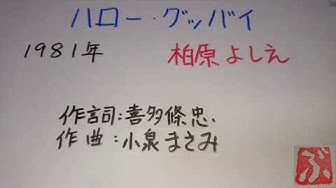 ハロー・グッバイ
1981年 柏原よしえ
作詞:喜多條忠.
作曲:小泉まさみ
ぶ